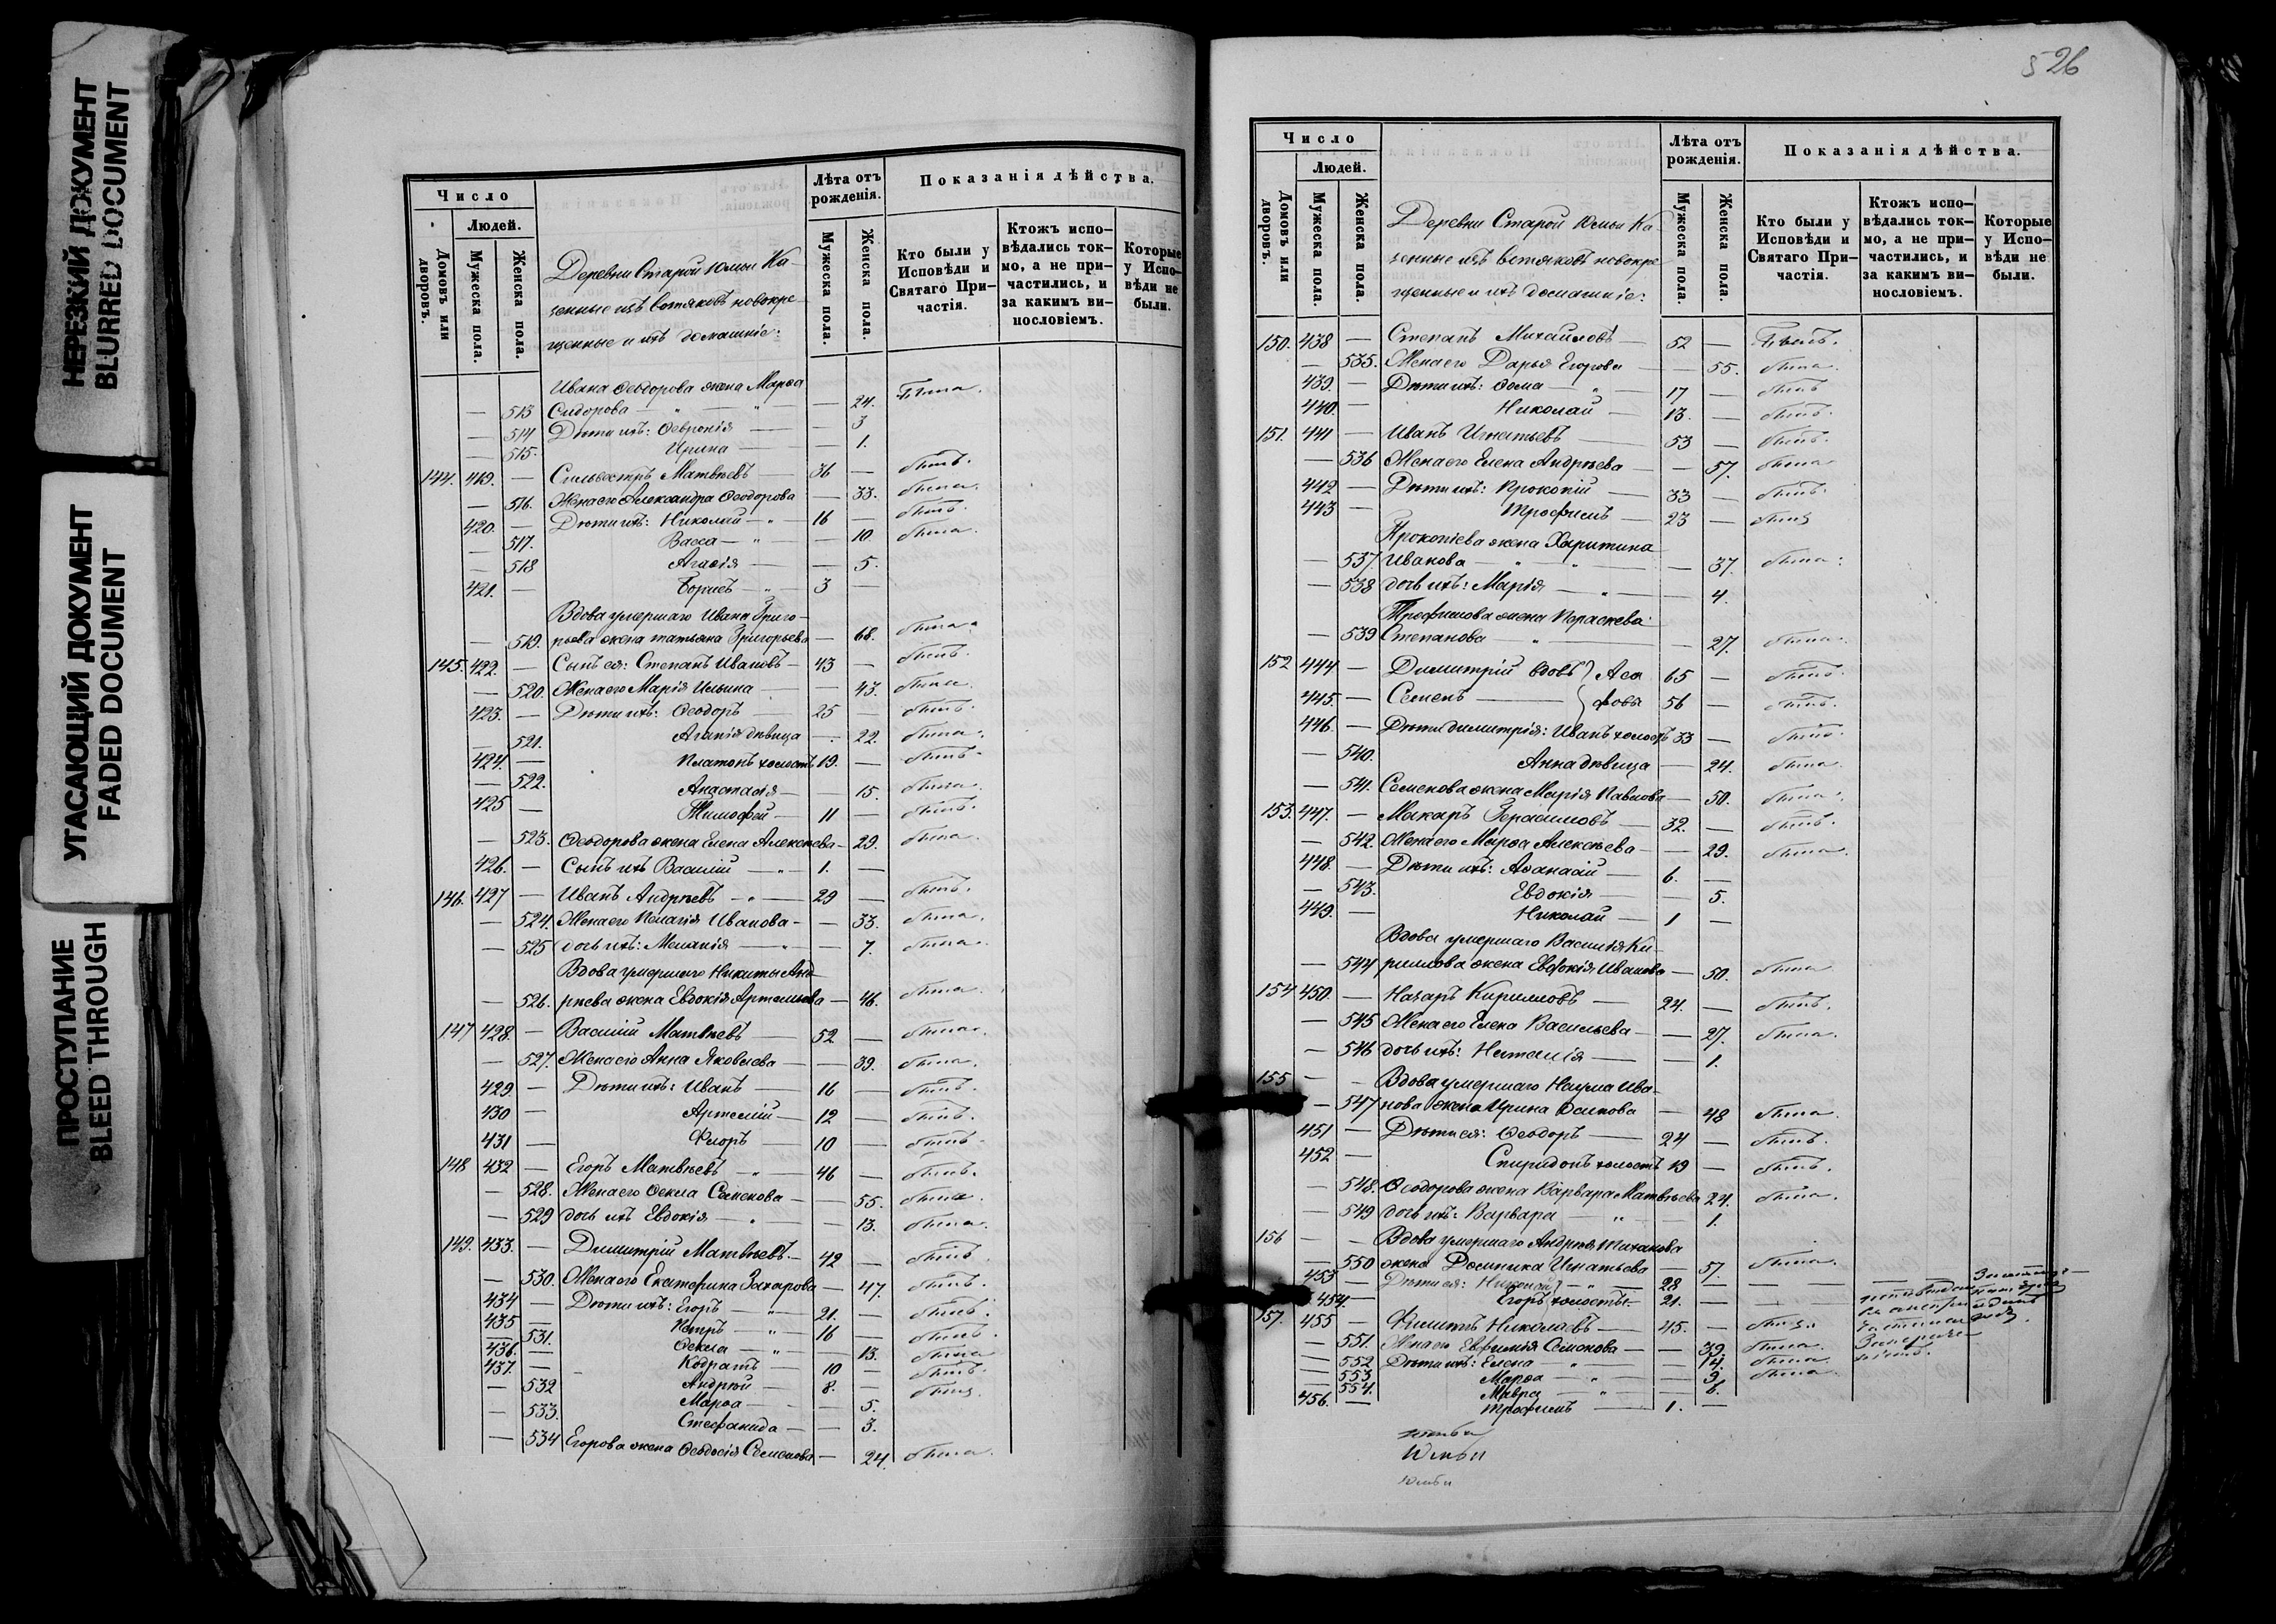 НЕРЕЗКИЙ ДОКУМЕНТ
BLURRED DOCUMENT
УГАСАЮЩИЙ ДОКУМЕНТ
FADED DOCUMENT
ПРОСТУПАНИЕ
BLEED THROUGH
Число
Людей.
Домовъ или дворовъ.
Мужеска пола.
Женска пола.
Деревни Старой Юмьи Ка-
зенные изъ вотяковъ новокре-
щенные и ихъ домашніе:
Лѣта отъ рожденія.
Мужеска пола.
Женска пола.
Показанія дѣйства.
Кто были у Исповѣди и Святаго При-частія.
Ктожъ испо-вѣдались ток-мо, а не при-частились, и за какимъ ви-нословіемъ.
Которые у Испо-вѣди не были.
Ивана Ѳеодорова жена Марѳа
— 513 Сидорова — " — " — — 24. Была.
— 514 Дѣти ихъ: Ѳевронія — — 3
— 515. Ирина — — 1.
144. 419. — Сильвестръ Матвѣевъ — 36 — былъ.
— 516. Жена его Александра Ѳеодорова — 33. была.
420. — Дѣти ихъ: Николай — " — 16 — былъ.
— 517. Васса — " — — 10. была.
— 518 Агаѳія — — 5.
421. — Борисъ — " — 3 —
Вдова умершаго Ивана Григо-
— 519. рьева жена татьяна Григорьева — 68. была.
145. 422. — Сынъ ея: Степанъ Ивановъ — 43 — былъ.
— 520. Жена его Марія Ильина — — 43. была.
423. — Дѣти ихъ: Ѳеодоръ — 25 — былъ.
— 521. Агапія дѣвица — 22. была.
424. — Платонъ холостъ 19. — былъ.
— 522. Анастасія — — 15. была.
425 — Тимофей — 11 — былъ.
— 523. Ѳеодорова жена Елена Алексѣева — 29. была.
426. — Сынъ ихъ Василій — " — 1. —
146. 427 — Иванъ Андреевъ — " — 29 — былъ.
— 524. Жена его Пелагія Иванова — — 33. была.
— 525 дочь ихъ: Меланія — " — — 7. была.
Вдова умершаго Никиты Анд-
— 526. рѣева жена Евдокія Артемьева — 46. была.
147 428. — Василій Матвѣевъ — 52 — былъ.
— 527. Жена его Анна Яковлева — — 39. была.
429. — Дѣти ихъ: Иванъ — 16 — былъ.
430 — Артемій — 12 — былъ.
431 — Флоръ — 10 — былъ.
148 432 — Егоръ Матвѣевъ — " — 46 — былъ.
— 528. Жена его Ѳекла Семенова — — 55. была.
— 529 дочь ихъ Евдокія — " — — 13. была.
149. 433. — Димитрій Матвѣевъ. — 42 — былъ.
— 530. Жена его Екатерина Захарова — 47. былъ.
434 — Дѣти ихъ: Егоръ — " — 21. — былъ.
435 — Петръ — " — 16 — былъ.
— 531. Ѳекла — " — — 13. была
436. — Кодратъ — 10 — былъ.
437. — Андрей — 8. — былъ.
— 532 Марѳа — — 5.
— 533. Стефанида — — 3.
— 534 Егорова жена Ѳеодосія Семенова — 24. была.
526
Число
Людей.
Домовъ или дворовъ.
Мужеска пола.
Женска пола.
Деревни Старой Юмьи Ка-
зенные изъ вотяковъ новокре-
щенные и ихъ домашніе:
Лѣта отъ рожденія.
Мужеска пола.
Женска пола.
Показанія дѣйства.
Кто были у Исповѣди и Святаго При-частія.
Ктожъ испо-вѣдались ток-мо, а не при-частились, и за какимъ ви-нословіемъ.
Которые у Испо-вѣди не были.
150. 438 — Степанъ Михайловъ — 52 — Былъ.
— 535. Жена его Дарья Егорова — — 55. была.
439. — Дѣти ихъ: Ѳома — " — 17 — былъ
440. — Николай — 13. — былъ.
151. 441 — Иванъ Игнатьевъ — 53 — былъ.
— 536 Жена его Елена Андреева — — 57. была
442 — Дѣти ихъ: Прокопій — 33 — былъ.
443 — Трофимъ — 23 — былъ
Прокопіева жена Харитина
— 537. Иванова — " — " — — 37. была:
— 538 дочь ихъ: Марія — " — — 4.
Трофимова жена Параскева
— 539 Степанова — " — — 27. была.
152 444. — Димитрій вдовъ } Аga 65 — былъ.
445. — Семенъ — } фовы 56 — былъ.
446. — Дѣти Димитрія: Иванъ холостъ 33 — былъ.
— 540. Анна дѣвица — 24. была.
— 541. Семенова жена Марія Павлова — 50. была.
153. 447. — Макаръ Герасимовъ — 32. — былъ.
— 542. Жена его Марѳа Алексѣева — — 29. была.
448. — Дѣти ихъ: Аѳанасій — 6. —
— 543. Евдокія — — 5.
449. — Николай — 1 —
Вдова умершаго Василья Ки-
— 544 риллова жена Евдокія Иванова — 50. была.
154 450. — Назаръ Кирилловъ — 24. — былъ.
— 545 Жена его Елена Васильева — — 27. была.
— 546 дочь ихъ: Наталія — — 1.
155 — — Вдова умершаго Наума Ива-
— 547 нова жена Ирина Осипова — 48 была.
451 — Дѣти ея: Ѳеодоръ — 24 — былъ.
452 — Спиридонъ холостъ 19 — былъ.
— 548. Ѳеодорова жена Варвара Матвѣева 24. была.
— 549 дочь ихъ: Варвара — " — 1.
156 — — Вдова умершаго Андрея Тиханова
— 550 жена Домника Игнатьева — 57. была.
453 — Дѣти ея: Николай — " — 28 — —
454. — Егоръ холостъ. — 21. — —
157. 455 — Филиппъ Николаевъ — 45. —
— 551. Жена его Евфимія Семенова — — 39. была.
— 552 Дѣти ихъ: Елена — " — — 14. была.
— 553 Марѳа — " — — 9. была.
— 554. Мавра — " — — 6.
456. — Трофимъ — 1. —
Юмьи
юмьи